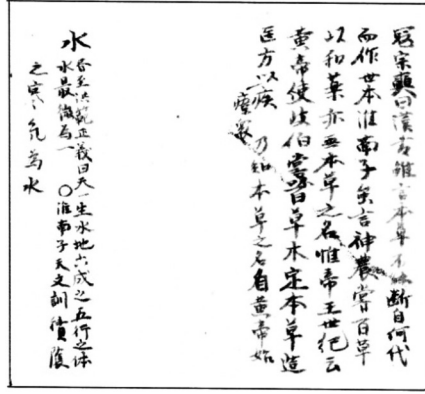 寇宗奭曰漢書雖言本草不能斷自何代
而作世本淮南子矣言神農嘗百草
以和藥亦無本草之名惟帝王世紀云
黃帝使岐伯嘗百草木定本草造
医方以療疾 乃知本草之名自黃帝始
水
洪範正義曰天一生水地六成之五行之体
水最微為一 ○淮南子天文訓積陰
之寒氣為水